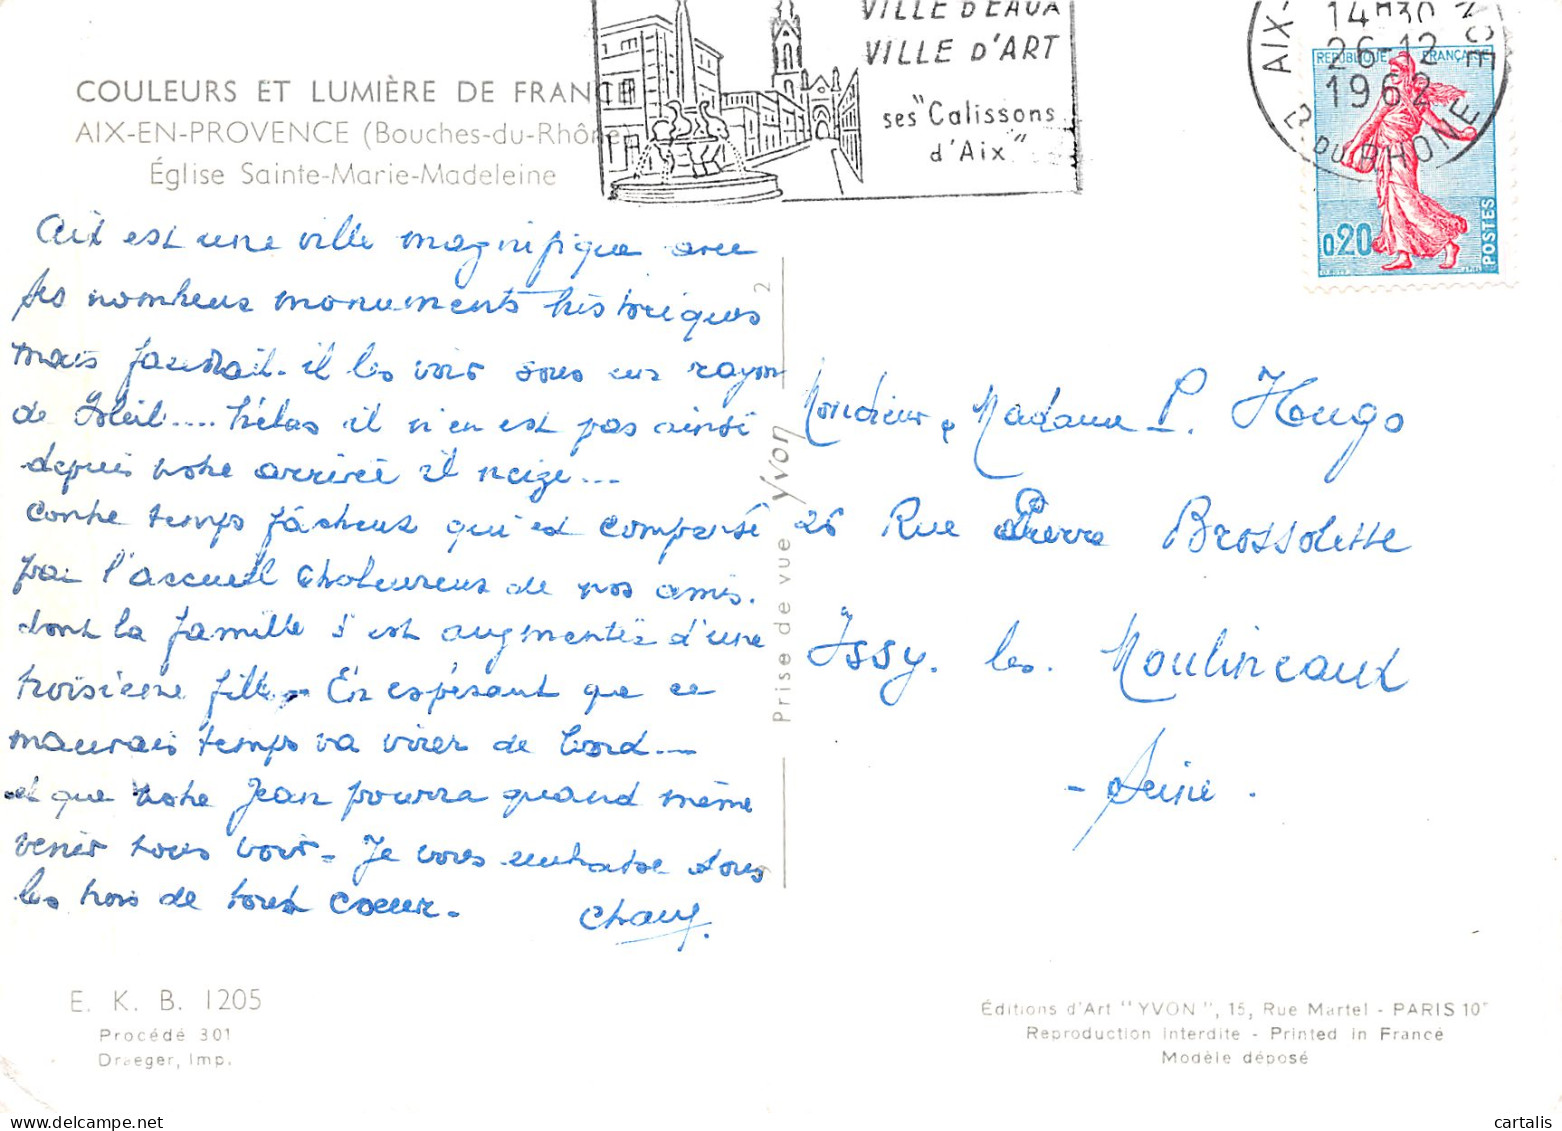 COULEURS ET LUMIÈRE DE FRANCE
AIX-EN-PROVENCE (Bouches-du-Rhône)
Église Sainte-Marie-Madeleine
VILLE D'EAUX
VILLE D'ART
ses "Calissons
d'Aix"
AIX-
14H30
26-12
1962
B. DU RHONE
REPUBLIQUE FRANÇAISE
0,20
POSTES
Aix est une ville magnifique avec
ses nombreux monuments historiques
mais faudrait-il les voir sous un rayon
de Soleil.... hélas il n'en est pas ainsi
depuis notre arrivée il neige...
contre temps fâcheux qui est compensé
par l'accueil chaleureux de nos amis.
dont la famille s'est augmentée d'une
troisième fille. En espérant que ce
mauvais temps va virer de bord...
et que notre Jean pourra quand même
venir nous voir. Je vous embrasse tous
les trois de tout coeur.
Monsieur & Madame P. Hugo
26 Rue Pierre Brossolette
Issy. les. Moulineaux
- Seine .
Prise de vue Yvon
2
E. K. B. 1205
Procédé 301
Draeger, Imp.
Éditions d'Art "YVON", 15, Rue Martel - PARIS 10e
Reproduction Interdite - Printed in France
Modèle déposé
cartalis
www.delcampe.net